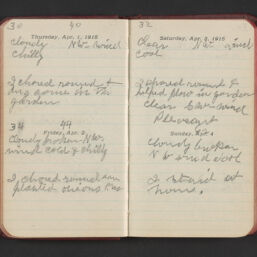 30 40
Thursday, Apr. 1, 1915
Cloudy NW-wind
chilly
I chored round &
dug some in the
garden
34 44
Friday, Apr. 2
Cloudy broken NW-
wind cold & chilly
I chored round and
planted onions
32
Saturday, Apr. 3, 1915
Clear NW- wind
cool
I chored round &
helped plow in garden
Clear wind
Pleasant
Sunday, Apr. 4
Cloudy broken
NW wind cool
I staid at
home.